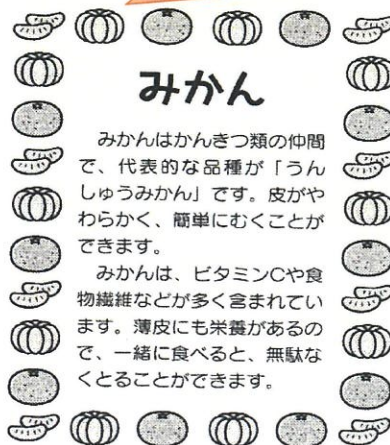 みかん
みかんはかんきつ類の仲間
で、代表的な品種が「うん
しゅうみかん」です。皮がや
わらかく、簡単にむくことが
できます。
みかんは、ビタミンCや食
物繊維などが多く含まれてい
ます。薄皮にも栄養があるの
で、一緒に食べると、無駄な
くとることができます。